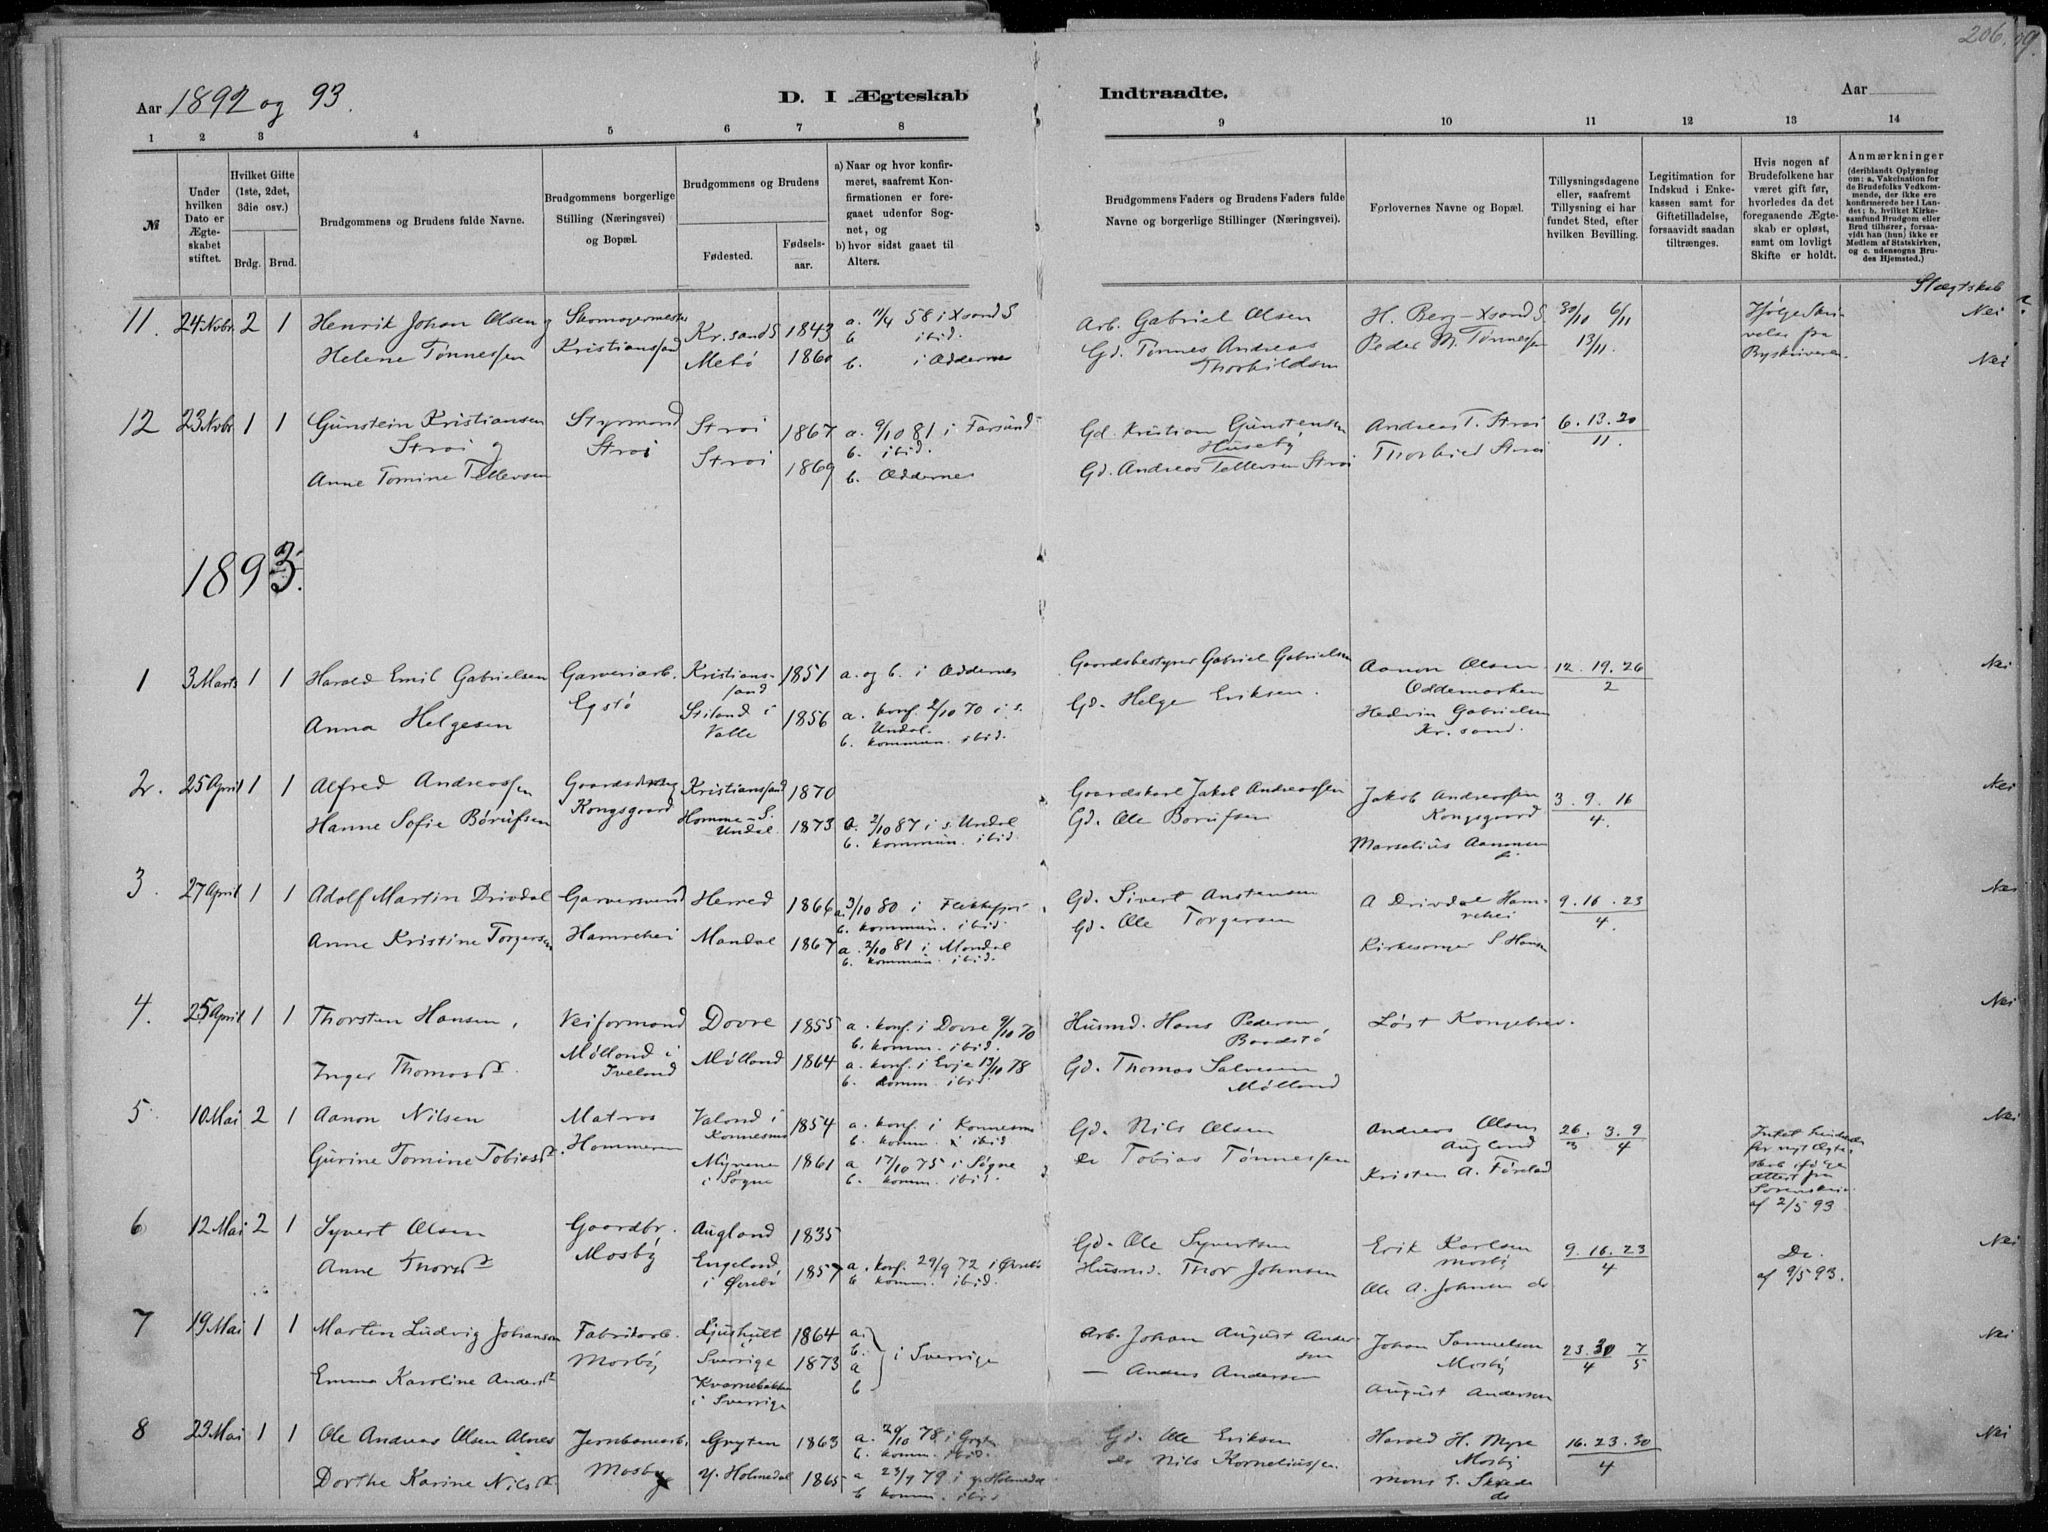 206.
Aar 1892 og 93.
D. I Ægteskab
Indtraadte.
Aar
1 2 3 4 5 6 7 8
9 10 11 12 13 14
№
Under hvilken Dato er Ægteskabet stiftet.
Hvilket Gifte (1ste, 2det, 3die osv.)
Brdg. Brud.
Brudgommens og Brudens fulde Navne.
Brudgommens borgerlige Stilling (Næringsvei) og Bopæl.
Brudgommens og Brudens
Fødested.
Fødselsaar.
a) Naar og hvor konfirmeret, saafremt Konfirmationen er foregaaet udenfor Sognet, og
b) hvor sidst gaaet til Alters.
Brudgommens Faders og Brudens Faders fulde Navne og borgerlige Stillinger (Næringsvei).
Forlovernes Navne og Bopæl.
Tillysningsdagene eller, saafremt Tillysning ei har fundet Sted, efter hvilken Bevilling.
Legitimation for Indskud i Enkekassen samt for Giftetilladelse, forsaavidt saadan tiltrænges.
Hvis nogen af Brudefolkene har været gift før, hvorledes da det foregaaende Ægteskab er opløst, samt om lovligt Skifte er holdt.
Anmærkninger (deriblandt Oplysning om: a. Vakcination for de Brudefolks Vedkommende, der ikke ere konfirmerede her i Landet; b. hvilket Kirkesamfund Brudgom eller Brud tilhører, forsaavidt han (hun) ikke er Medlem af Statskirken, og c. udensogns Brudes Hjemsted.)
Slægtskab
11. 24 Novbr. 2 1 Henrik Johan Olsen og Skomagermester Kr.sand S 1843 a. 11/4 58 i Xsand S
Kristianssand b ibid.
Helene Tønnessen Mebø 1860 b. i Oddernes
Arb. Gabriel Olsen H. Berg - Xsand S 30/10 6/11 Nei
Gd. Tønnes Andreas Thorkildsen Peder M. Tønnessen 13/11. Byskriveren. Nei
12 23 Novbr 1 1 Gunstein Kristiansen Styrmand Stroi 1867 a. 9/10 81 i Farsund
Stroi og Stroi b. ibid.
Anne Tomine Tellevsen Stroi 1869 b. Oddernes
Gd. Kristian Gunstensen Huseby Andreas T. Stroi 6. 13. 20 / 11.
Gd. Andreas Tellevsen Stroi Thorkild Stroi
1893.
1 3 Marts 1 1 Harald Emil Gabrielsen Garveriarb. Kristianssand 1851 a. og b. i Oddernes
Egstø
Anna Helgesen Stiland i Valle 1856 a. konf. 2/10 70 i S. Undal.
b. kommun. ibid.
Gaardsbestyrer Gabriel Gabrielsen Aanon Olsen Oddemarken 12. 19. 26 / 2 Nei
Gd. Helge Eriksen. Hedvin Gabrielsen Kr. sand.
2. 25 April 1 1 Alfred Andreassen Kristianssand 1870
Kongsgaard
Hanne Sofie Børufsen Homme - S. Undal 1873 a. 2/10 87 i S. Undal
b. kommun. ibid.
Gaardskarl Jakob Andreassen Jakob Andreassen Kongsgaard 3. 9. 16 / 4. Nei
Gd. Ole Børufsen Marselius Aanonsen
3. 27 April 1 1 Adolf Martin Drivdal Garversvend Herred 1866 a. 3/10 80 i Flekkefjor
b. kommun. ibid.
Anne Kristine Torgersen Hamrehei Mandal 1867 a. 2/10 81 i Mandal
b. kommun. ibid.
Gd. Sivert Anstensen A Drivdal Hamrehei 9. 16. 23 / 4. Nei
Gd. Ole Torgersen Kirkesanger S Hansen
4. 25 April 1 1 Thorsten Hansen, Veiformand Dovre 1855 a. konf. i Dovre 9/10 70
b. komm. ibid.
Mølland i Iveland
Inger Thomasdr. Mølland 1864 a. konf. i Evje 13/10 78
b. komm. ibid.
Husmd. Hans Pedersen Løst Kongebrev. Nei
Gd. Thomas Salvesen Mølland
5 10 Mai 2 1 Aanon Nilsen Matros Valand i Konnesmo 1854 a. konf. i Konnesmo
Hommeren b. komm. i ibid
Gurine Tomine Tobiasdr. Myrene i Søgne 1861 a 17/10 75 i Søgne
b. komm. ibid.
Gd. Nils Olsen Andreas Olsen Augland 26. 3. 9 / 3 4 Nei
do Tobias Tønnessen Kristen A. Føreland
Intet hinder for nyt Ægteskab ifølge Attest fra Sorenskriv. af 2/5 93
6 12 Mai 2 1 Syvert Olsen Gaardbr. Augland 1835
Mosby
Anne Thorsdr Engeland i Øvrebø 1857 a. konf. 29/9 72 i Øvrebø
b komm. ibid.
Gd. Ole Syvertsen Erik Karlsen Mosby 9. 16. 23 / 4 Do. af 9/5 93. Nei
Husmd. Thor Johnsen Ole A. Johnsen do
7 19 Mai 1 1 Martin Ludvig Johansen Fabrikarb. Ljushult i Sverrige 1864 a. b. i Sverrige
Mosby
Emma Karoline Andersdr Kvarnebakken i Sverrige 1873 a b
Arb. Johan August Andersson Johan Samuelson Mosby 23. 30 / 4 7/5 Nei
— Anders Andersson August Anderson
8 23 Mai 1 1 Ole Andreas Olsen Alnes Jernbanearb. Gryten 1863 a. 20/10 78 i Gryten
Mosby b. komm. ibid.
Dorthe Karine Nilsdr y. Holmedal 1865 a 23/9 79 i y. Holmedal
b komm. ibid
Gd. Ole Eriksen Harald H. Myre Mosby 16. 23. 30 / 4 Nei
do Nils Korneliussen Mons E. do